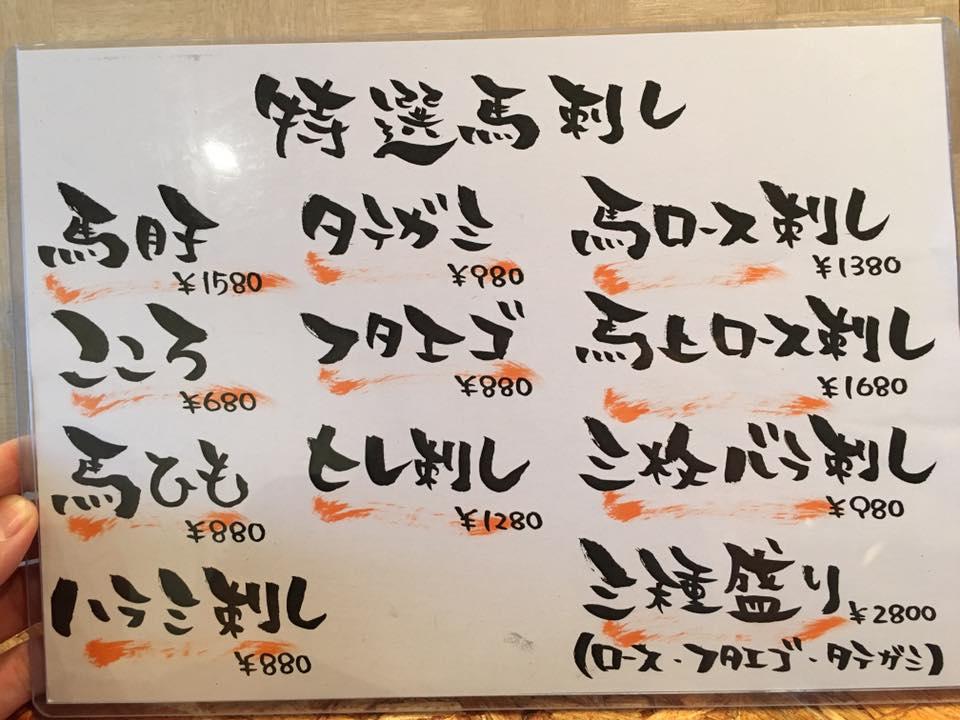 特選馬刺し
馬肝
¥1580
こころ
¥680
馬ひも
¥880
ハラミ刺し
¥880
タテガミ
¥980
フタエゴ
¥880
ヒレ刺し
¥1280
馬ロース刺し
¥1380
馬上ロース刺し
¥1680
三枚バラ刺し
¥980
三種盛り
¥2800
(ロース・フタエゴ・タテガミ)